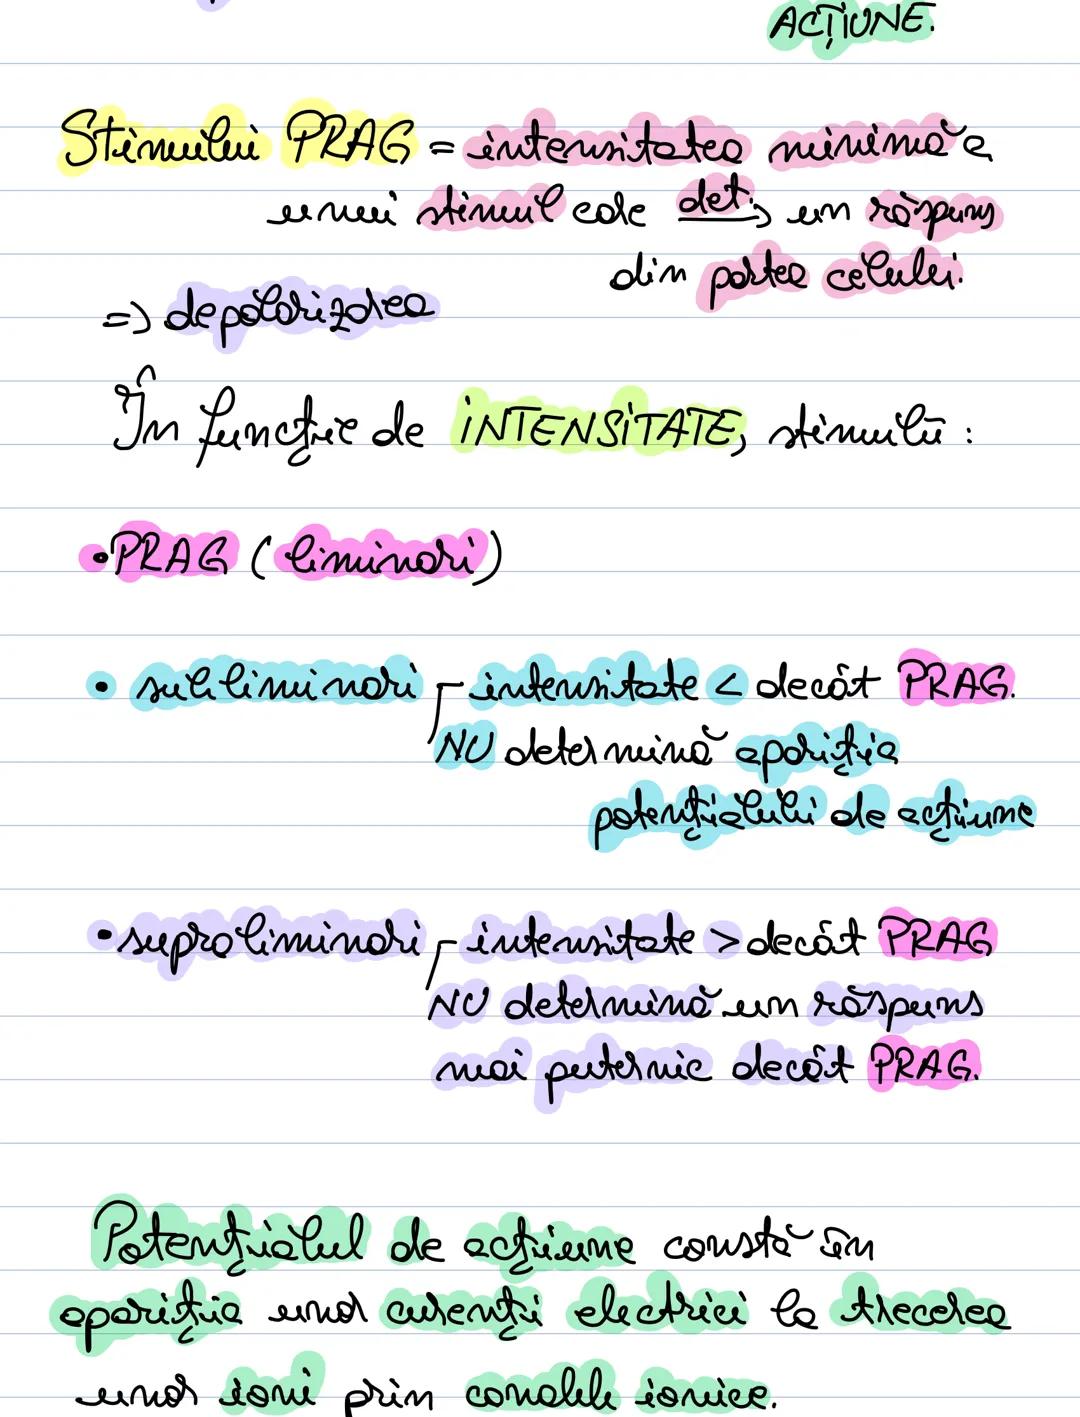 ACȚIUNE.
Stimului PRAG = intensitatea minimă a
unui stimul care det. un răspuns
din partea celulei.
=> depolarizarea
În funcție de INTENSITATE, stimulii :
• PRAG ( liminari )
• subliminari - intensitate < decât PRAG.
NU determină apariția
potențialului de acțiune
• supraliminari - intensitate > decât PRAG
NU determină un răspuns
mai puternic decât PRAG.
Potențialul de acțiune constă în
apariția unor curenți electrici la trecerea
unor ioni prin canalele ionice.